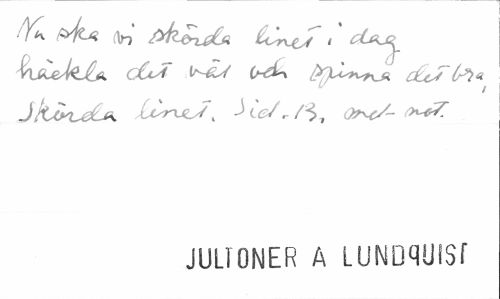 Nu ska vi skörda linet i dag
häckla det väl och spinna det bra,
Skörda linet. Sid. 13. met not.
JULTONER A LUNDQUIST